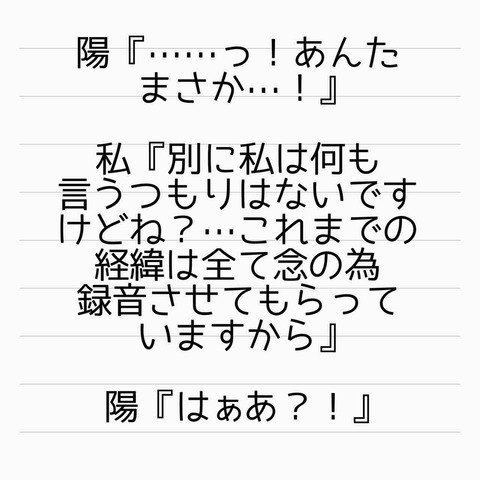 陽『……っ！あんた
まさか…！』
私『別に私は何も
言うつもりはないです
けどね？…これまでの
経緯は全て念の為
録音させてもらって
いますから』
陽『はぁあ？！』